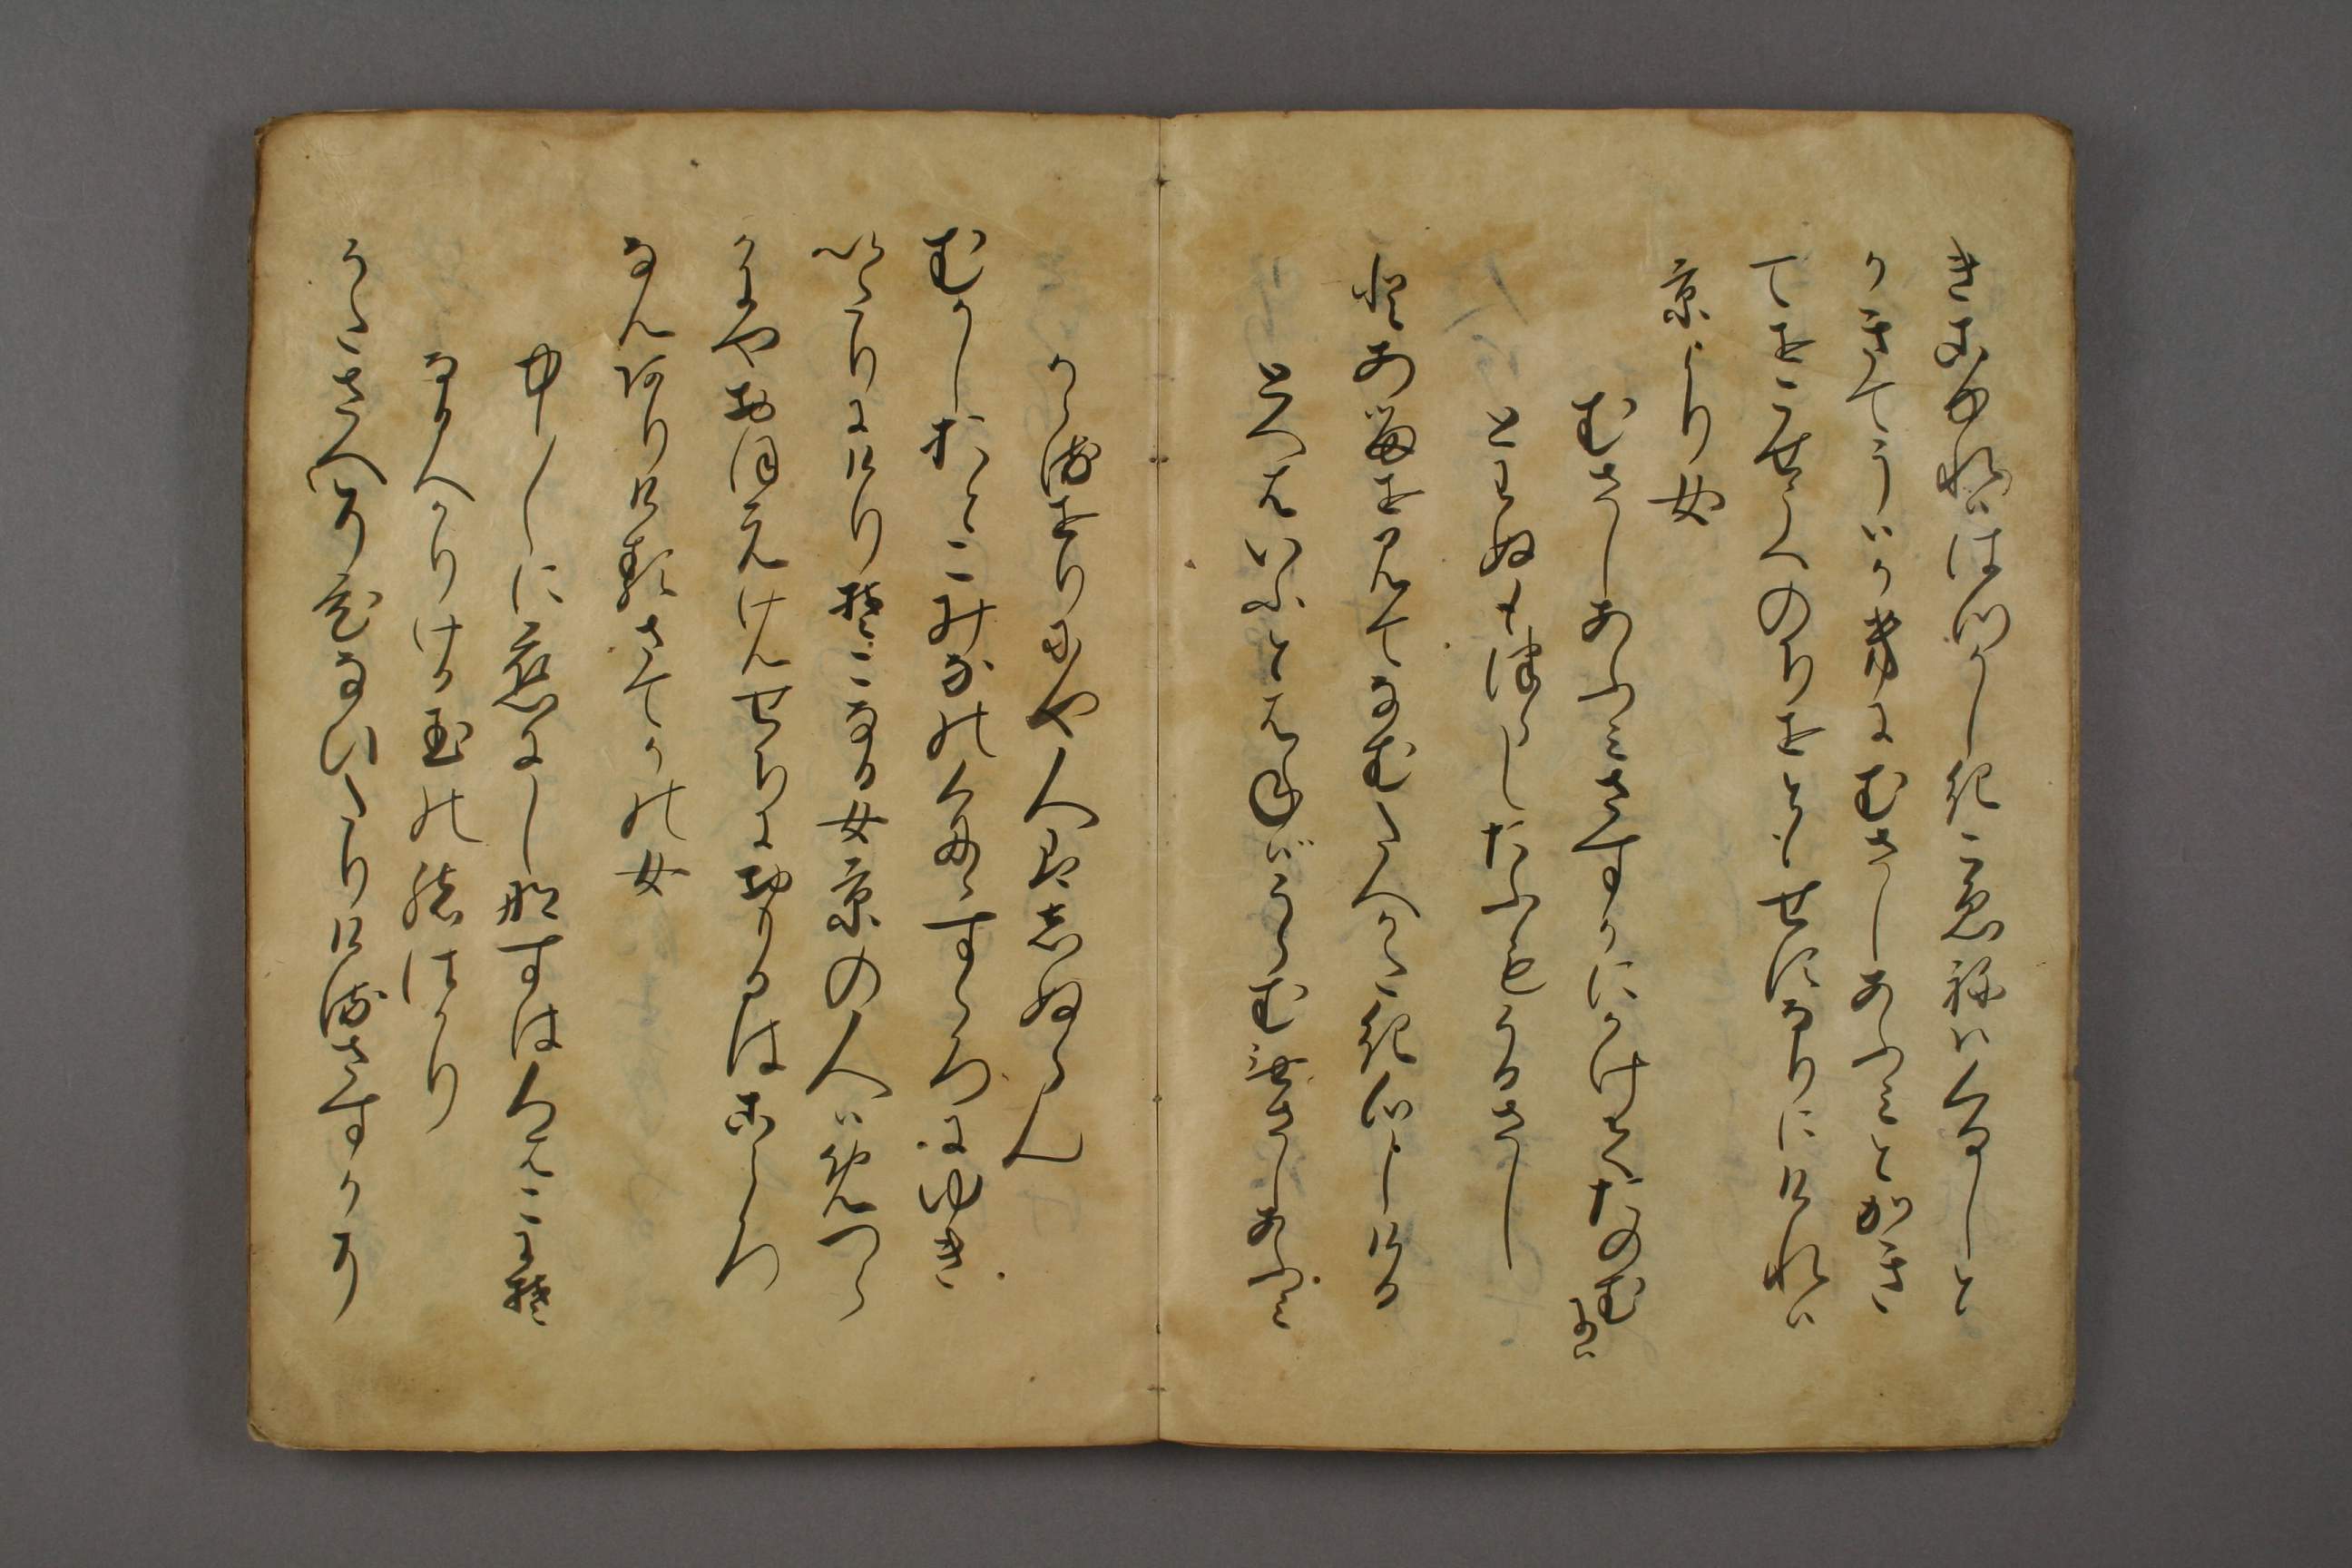 きこゆれはゝつかしきこえねはくるしと
かきてうはかきにむさしあふみとかき
てをこせてのちをともせすなりにけれは
京より女
むさしあふみさすかにかけてたのむには
とはぬもつらしとふもうるさし
とあるを見てなむたへかたき心ちしける
とへはいふとはねはうらむむさしあふみ
かゝるをりにや人はしぬらん
むかしおとこみちのくにゝすゝろにゆき
いたりにけりそこなる女京の人はめつら
かにやおほえけんせちにおもへるこゝろ
なんありけるさてかの女
中〱に恋にしなすはくはこにそ
なるへかりける玉の緒はかり
うたさへそひなひたりけるさすかに